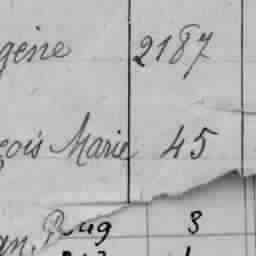 gène 2187
çois Marie 45
Aug 3
an.